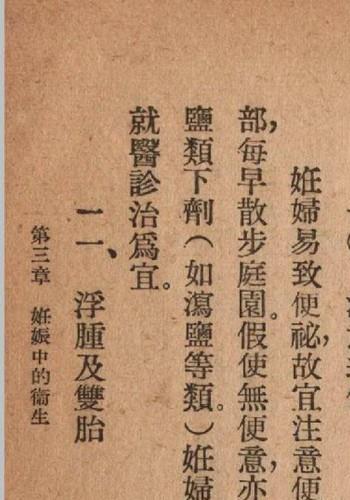 妊婦易致便祕，故宜注意便
部，每早散步庭園。假使無便意，亦
鹽類下劑（如瀉鹽等類。）妊婦
就醫診治爲宜。
一一、浮腫及雙胎
第三章 妊娠中的衞生